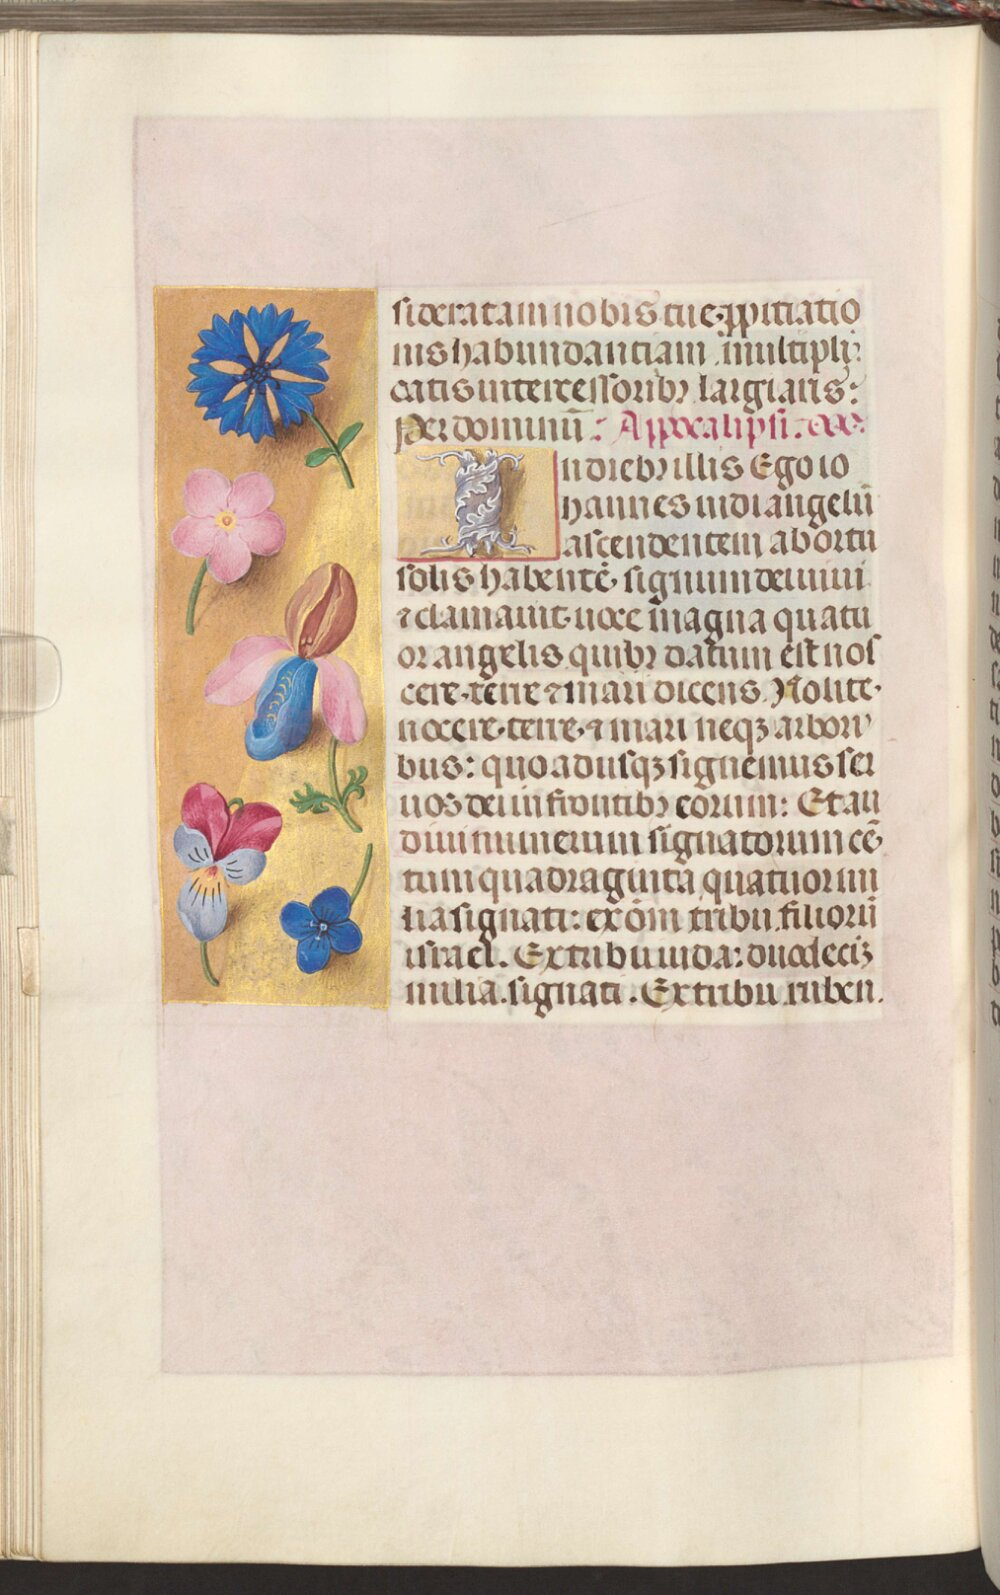 sideratam nobis tue ꝓpitiatio
nis habundantiam multipli
catis intercessoribꝫ largiaris:
Per dominū: Appocalipsi:
In diebꝫ illis Ego io
hannes uidi angelū
ascendentem ab ortu
solis habentē signum dei uiui
⁊ clamauit uoce magna quatu
or angelis quibꝫ datum est nos
cere terre ⁊ mari dicens Nolite
nocere terre ⁊ mari neqꝫ arbori
bus: quo adusqꝫ signemus ser
uos dei in frontibꝫ eorum: Et au
diui numerum signatorum cē
tum quadraginta quatuor mi
lia signati: ex om̄ tribu filiorū
israel. Ex tribu iuda: duodeciꝫ
milia signati. Ex tribu ruben.